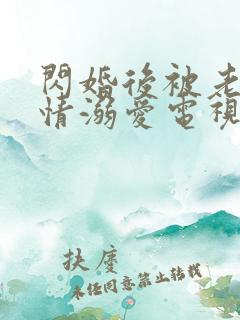 閃婚後被老
情溺愛電視
扶度
未任同意禁止转载